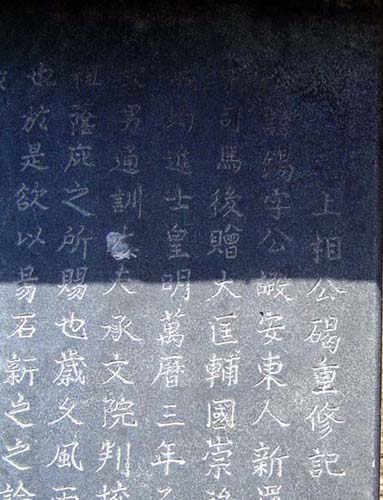 上相公碣重修記
公諱錫字公嘏安東人新
司馬後贈大匡輔國崇
均進士皇明萬曆三年
男通訓大夫承文院判校
蔭庇之所賜也歲久風雨
也於是欲以易石新之之論